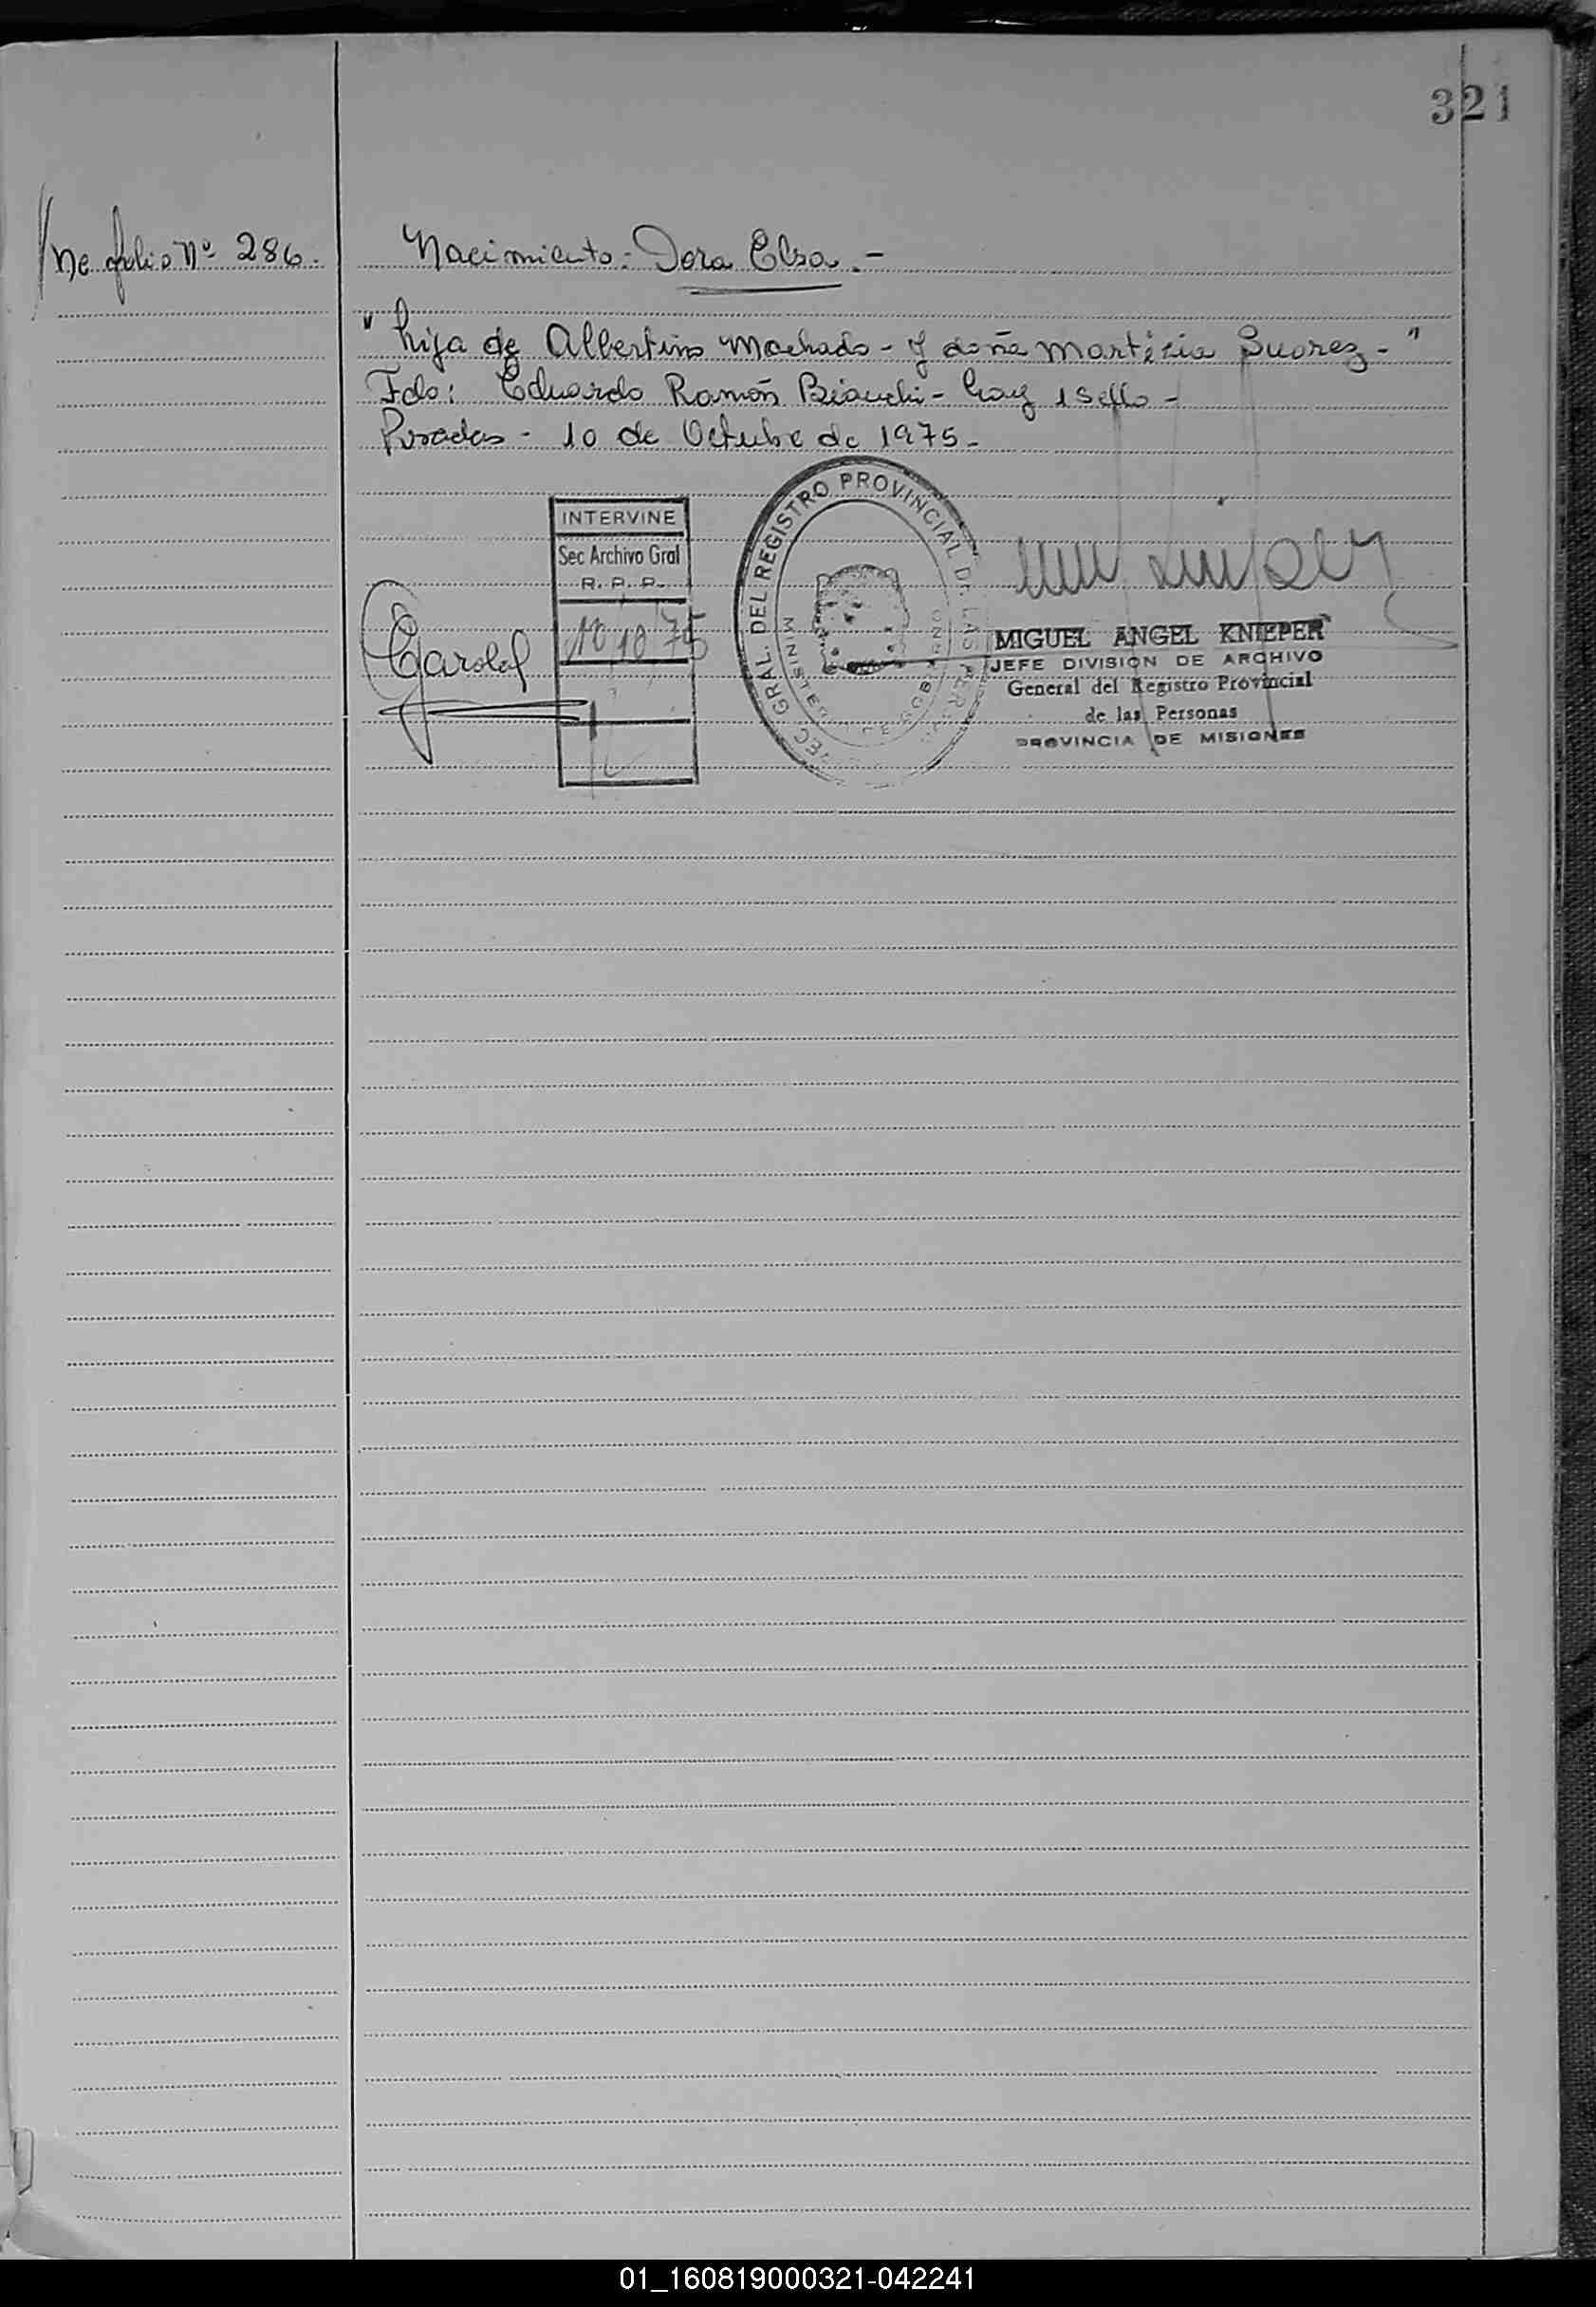 321
/ne folio Nº 286.
Nacimiento: Dora Elsa.-
"hija de Albertino Machado - y doña Martiria Suarez - "
Fdo: Eduardo Ramón Bianchi - hay 1 sello -
Posadas - 10 de Octubre de 1975 -
INTERVINE
Sec Archivo Gral
R. P. P.
10 10 75
GRAL. DEL REGISTRO PROVINCIAL DE LAS
MIGUEL ANGEL KNIEPER
JEFE DIVISION DE ARCHIVO
General del Registro Provincial
de las Personas
PROVINCIA DE MISIONES
01_160819000321-042241